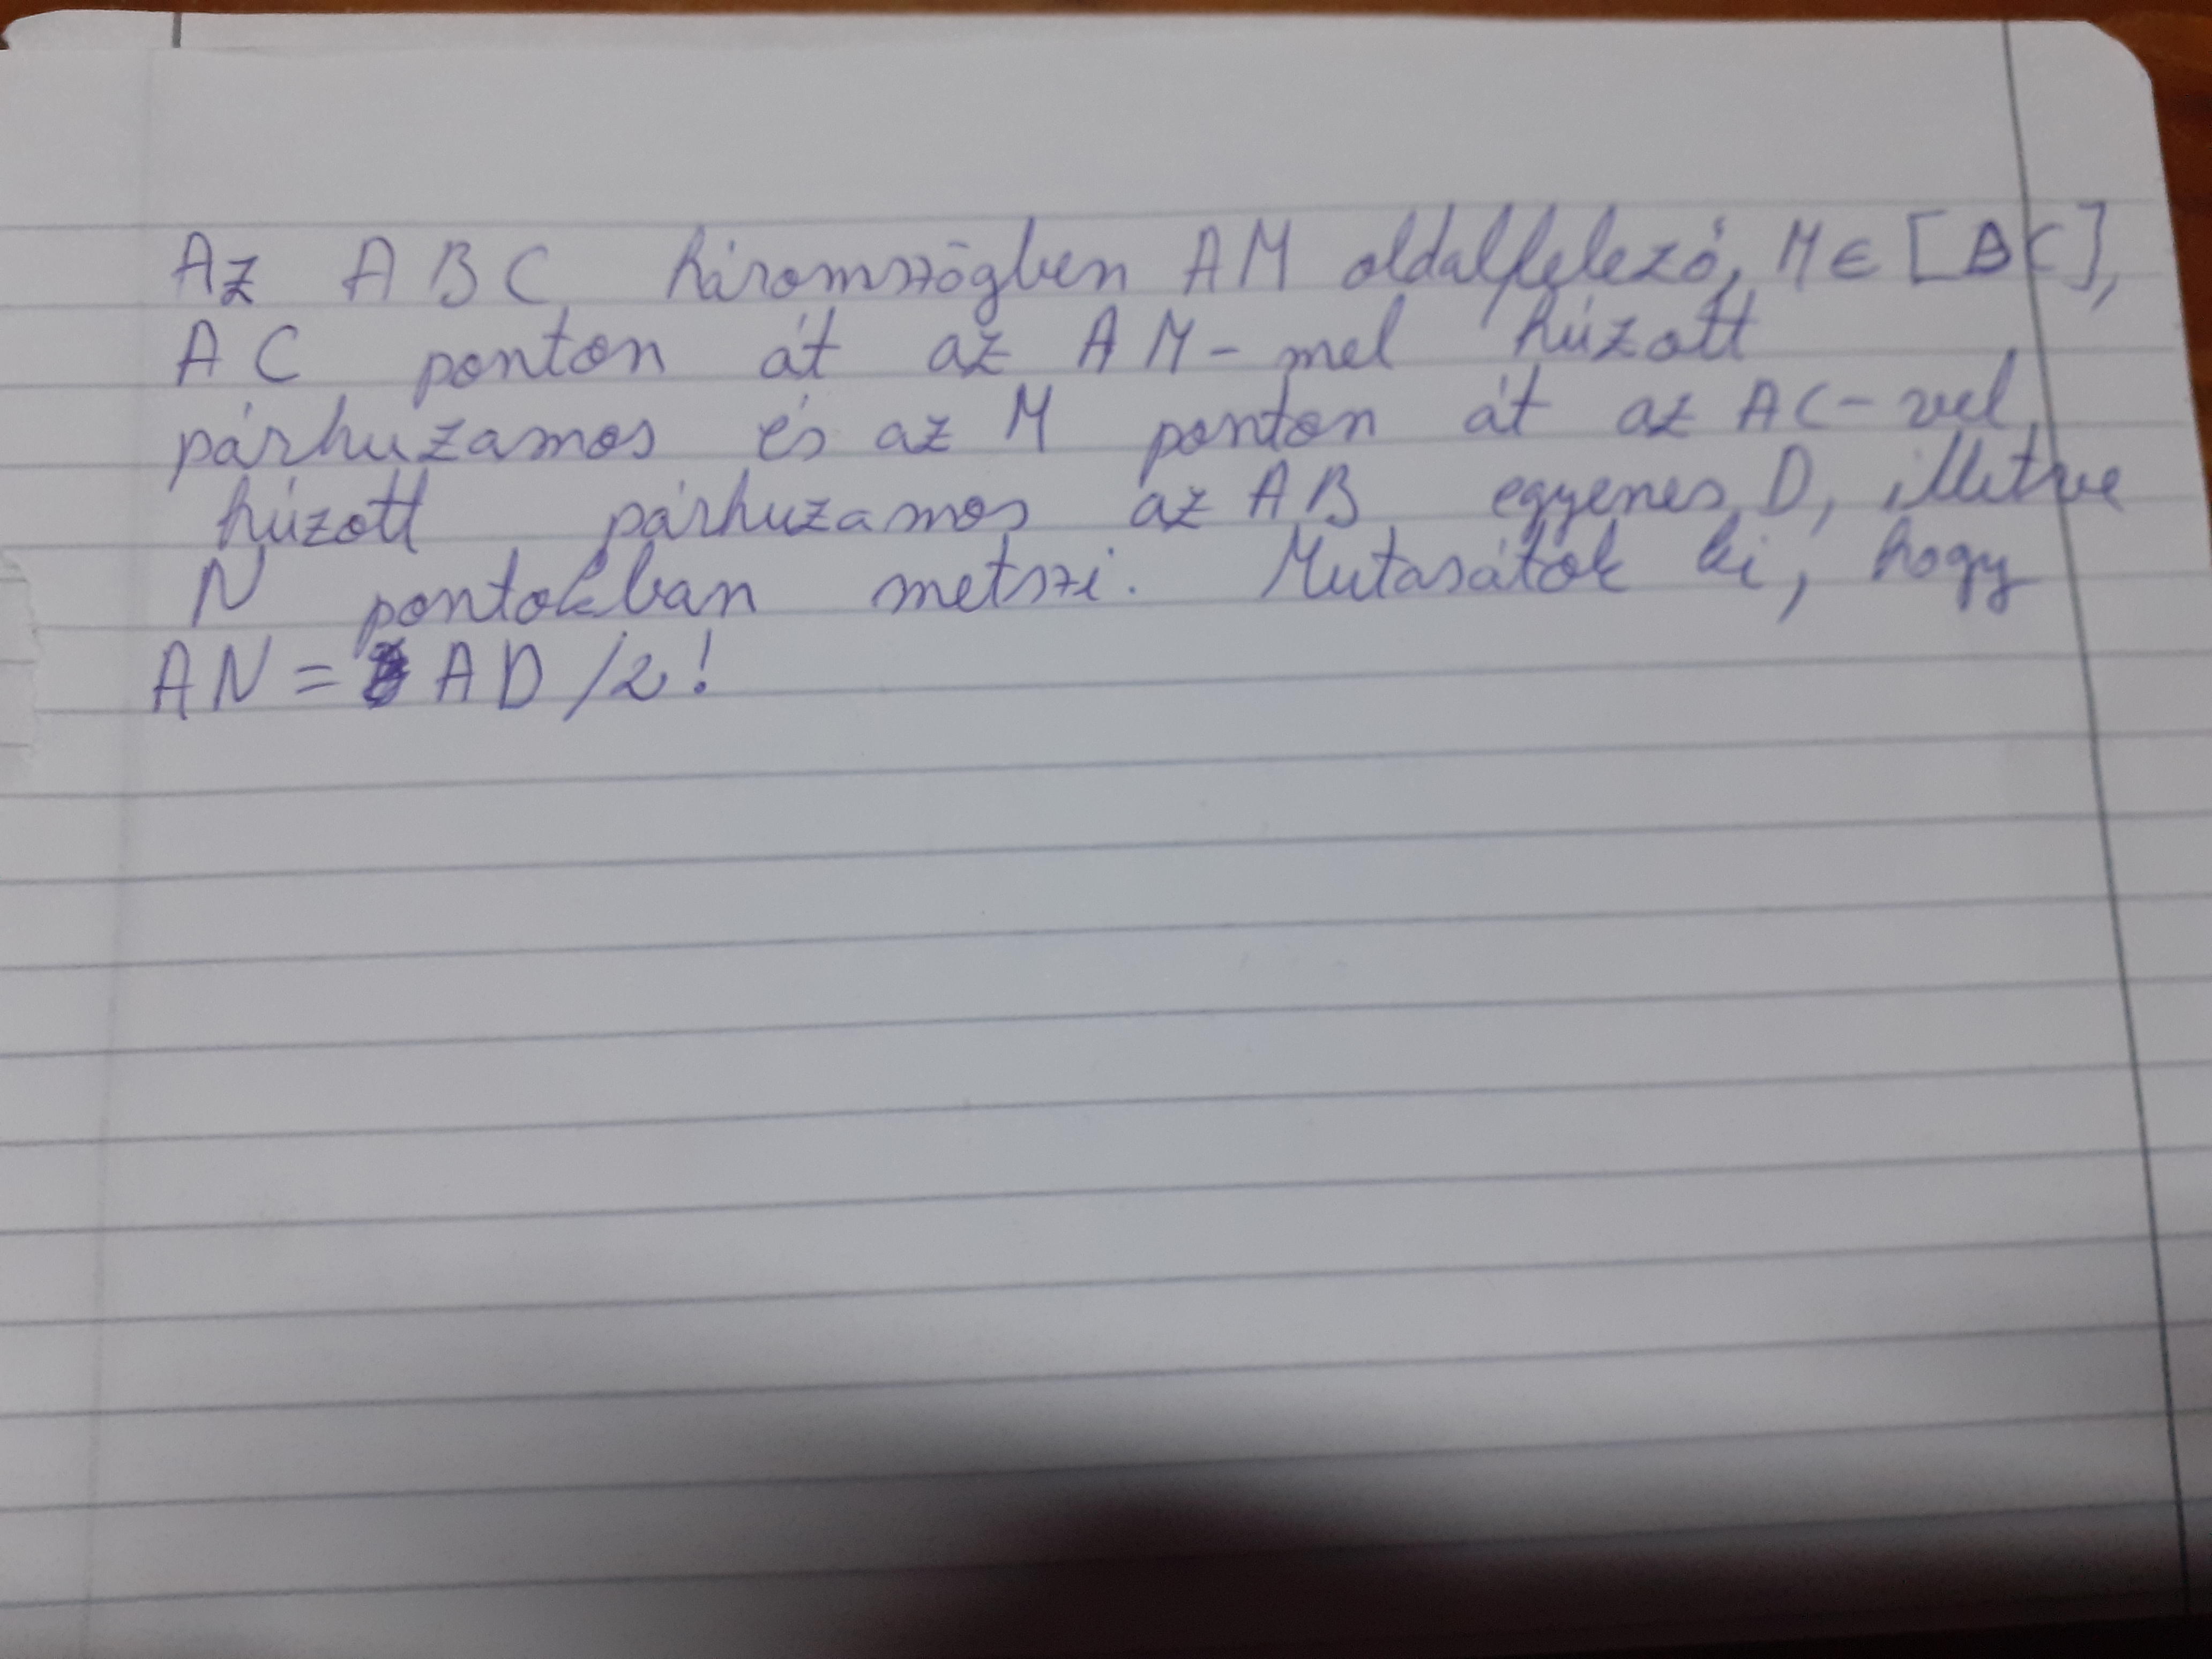 Az ABC háromszögben AM oldalfelező, M ∈ [BC],
A C ponton át az AM-mel húzott
párhuzamos és az M ponton át az AC-vel
húzott párhuzamos az AB egyenes D, illetve
N pontokban metszi. Mutasátok ki, hogy
AN = AD /2!